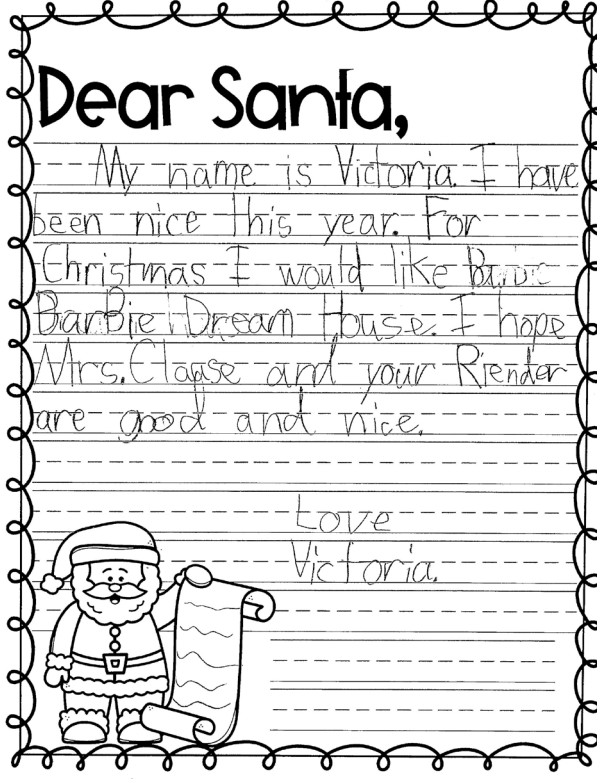 Dear Santa,
My name is Victoria. I have
been nice this year. For
Christmas I would like
BarBie Dream House. I hope
Mrs. Clause and your Riender
are good and nice.
Love
Victoria.